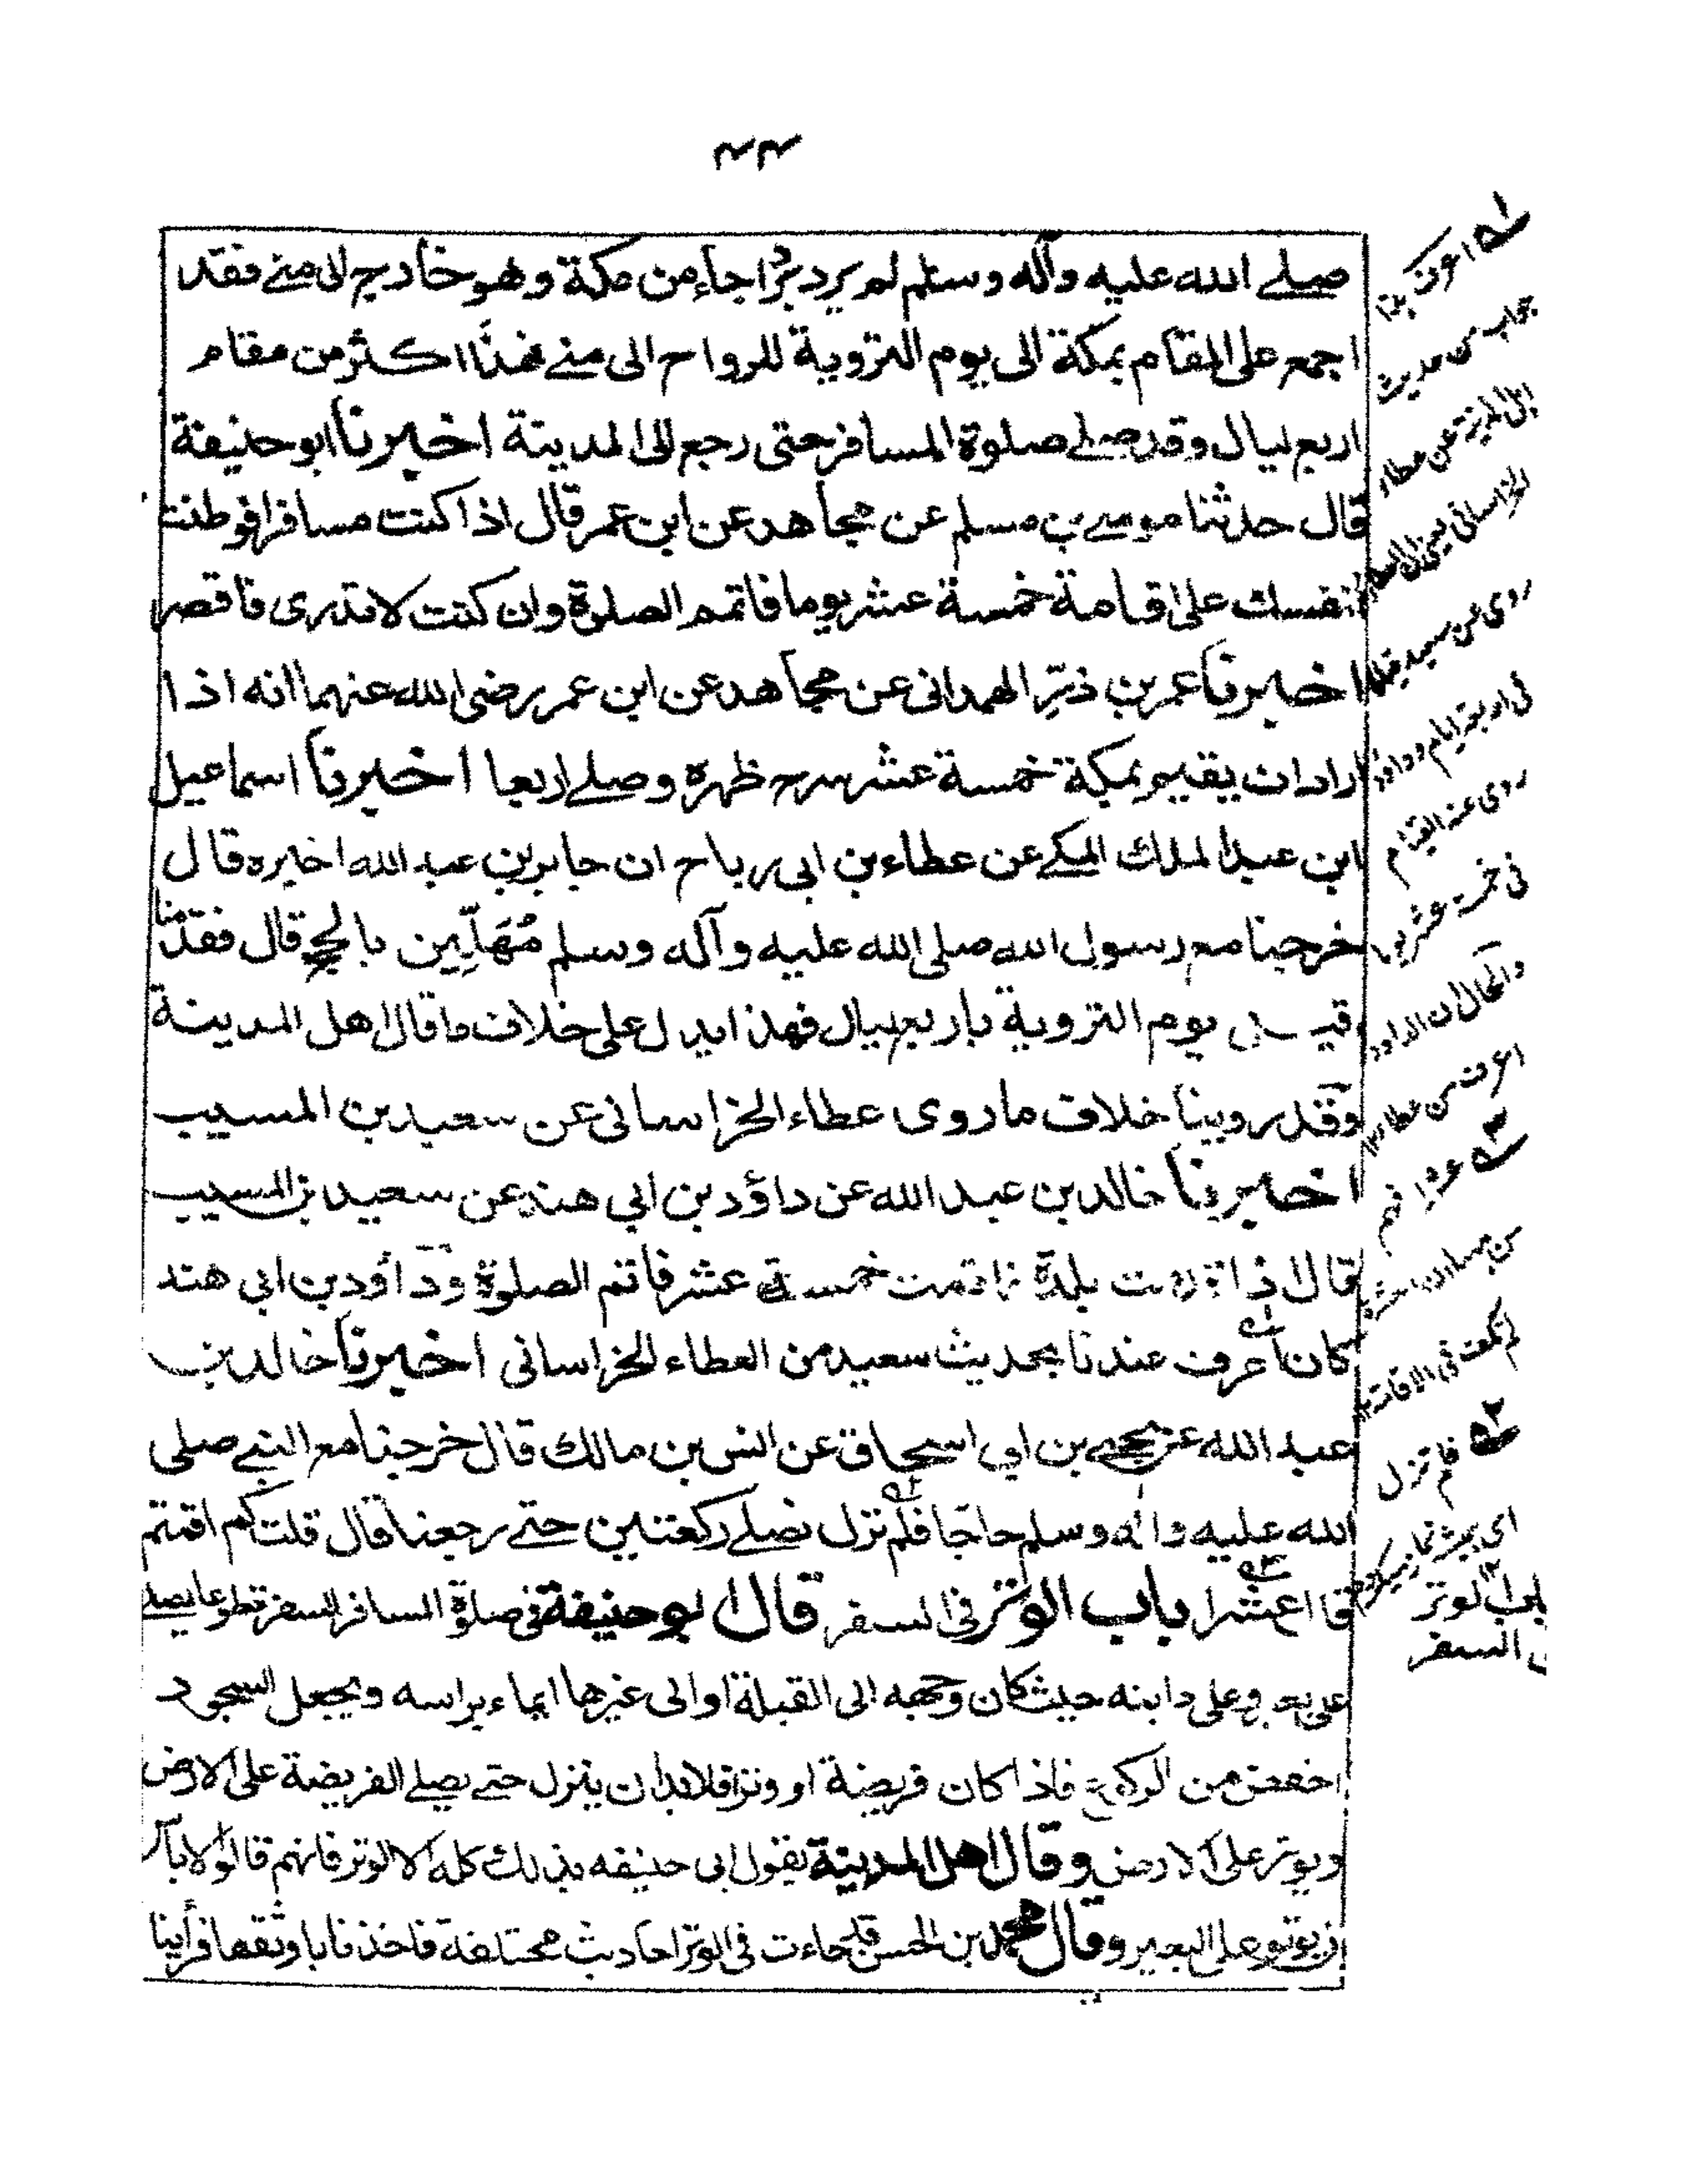 ٤٤
صلے الله عليه وآله وسلم لم يرد جاء من مكة وهو خارج الى منے فقد
اجمع على المقام بمكة الى يوم التروية للرواح الى منے فهذا اكثر من مقام
اربع ليال وقد صلے صلوة المسافر حتى رجع الى المدينة اخبرنا ابو حنيفة
قال حدثنا موسے بن مسلم عن مجاهد عن ابن عمر قال اذا كنت مسافرا فوطنت
نفسك على اقامة خمسة عشر يوما فاتمم الصلوة وان كنت لا تدرى فاقصر
اخبرنا عمر بن ذرّ الهمدانى عن مجاهد عن ابن عمر رضى الله عنهما انه اذا
اراد ان يقيم بمكة خمسة عشر سرح ظهره وصلے اربعا اخبرنا اسماعيل
ابن عبد الملك المكے عن عطاء بن ابى رباح ان جابر بن عبد الله اخبره قال
خرجنا مع رسول الله صلى الله عليه وآله وسلم مُهَلِّين بالحج قال فقدمنا
يوم التروية باربع ليال فهذا يدل على خلاف ما قال اهل المدينة
وقد روينا خلاف ما روى عطاء الخراسانى عن سعيد بن المسيب
اخبرنا خالد بن عبد الله عن داؤد بن ابي هند عن سعيد بن المسيب
قال اذا بلدة فاقمت خمسة عشر فاتم الصلوة وداؤد بن ابي هند
كان اعرف عندنا بحديث سعيد من العطاء الخراسانى اخبرنا خالد بن
عبد الله عن يحيے بن ابي اسحاق عن انس بن مالك قال خرجنا مع النبے صلى
الله عليه واله وسلم حاجا فلم نزل نصلے ركعتين حتے رجعنا قال قلت كم اقمتم
قال عشرا باب الوتر فى السفر قال ابو حنيفة فى صلوة المسافر السفر تطوعا يصلے
على بعيره وعلى دابته حيث كان وجهه الى القبلة او الى غيرها ايماء براسه ويجعل السجود
اخفض من الركوع فاذا كان فريضة او وترا فلا بد ان ينزل حتے يصلے الفريضة على الارض
ويوتر على الارض وقال اهل المدينة بقول ابى حنيفه بذلك كله الا الوتر فانهم قالوا لا باس
ان يوتر على البعير وقال محمد بن الحسن قد جاءت فى الوتر احاديث مختلفة فاخذنا باوثقها فرأينا
جواب من حديث
عن عطاء
روى عن سعيد
روى عنه القيام
فى خمسة عشر
فلم نزل
باب الوتر
السفر